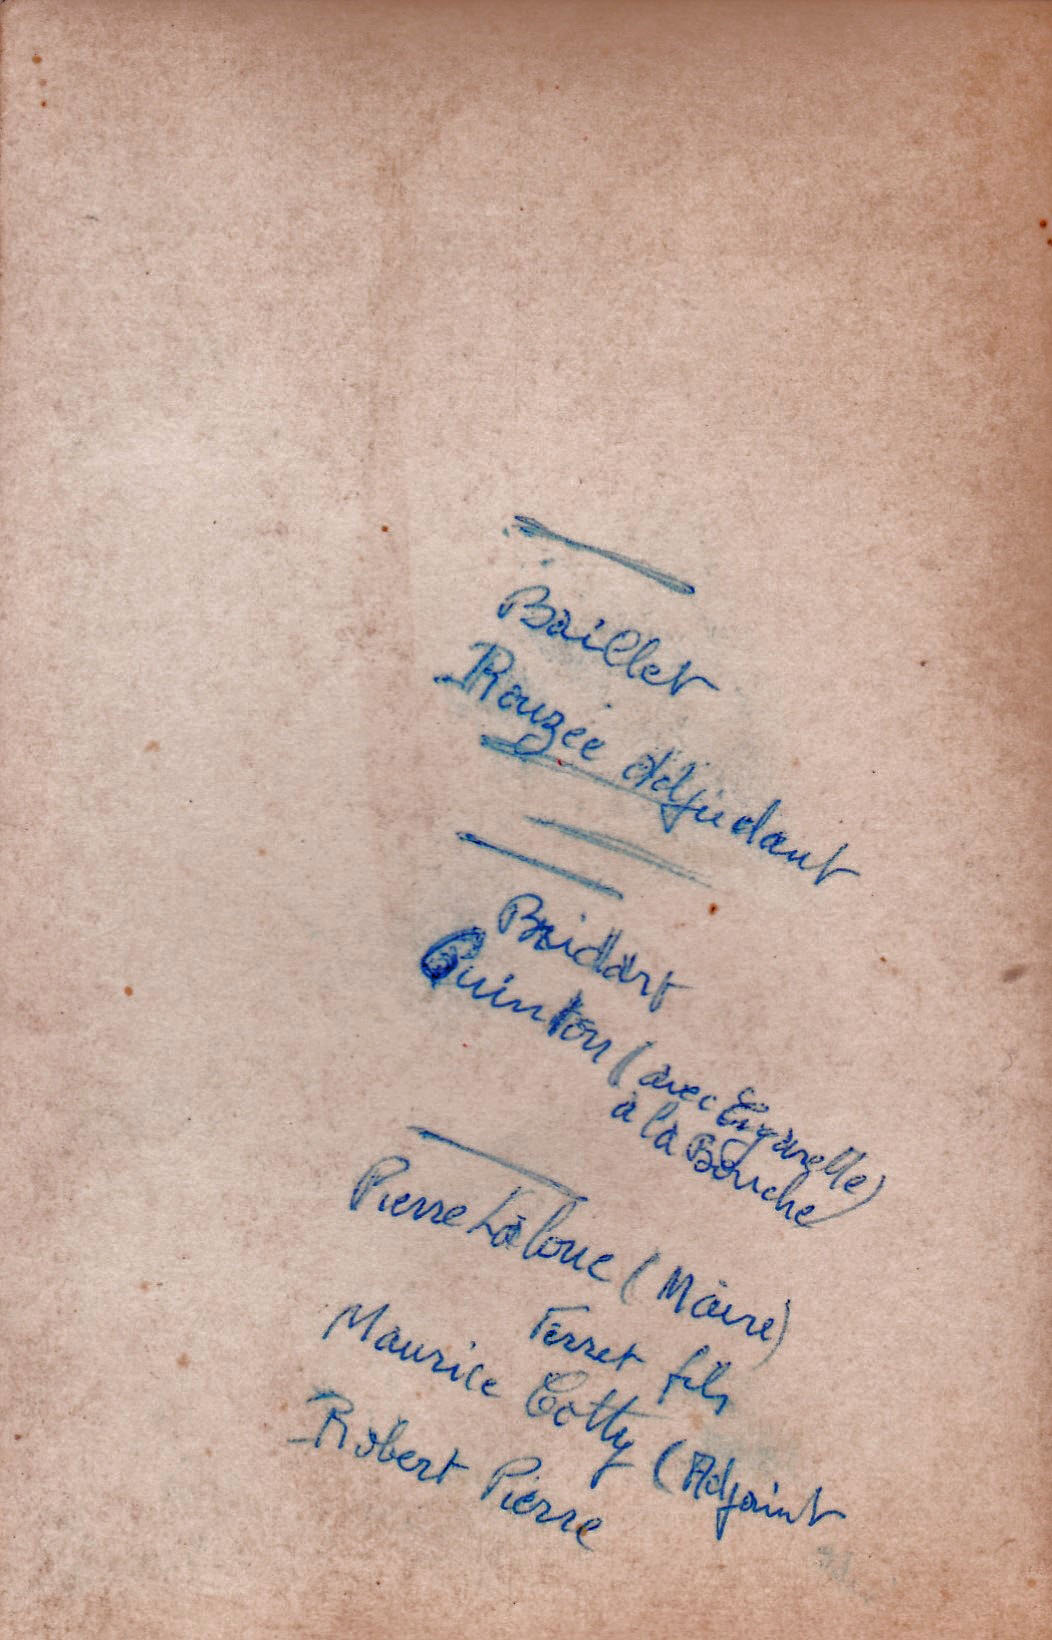 Baillet
Rouzée Adjudant
Bridart
Quinton (avec Cigarette)
à la Bouche)
Pierre Laloue (Maire)
Ferret fils
Maurice Cotty (Adjoint
Robert Pierre